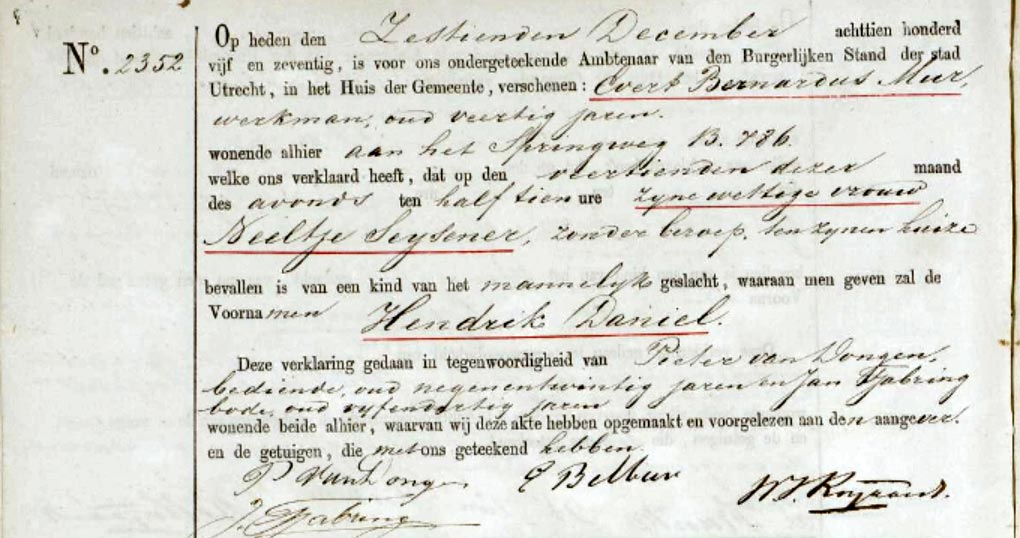 N°. 2352
Op heden den Zestienden December achttien honderd
vijf en zeventig, is voor ons ondergeteekende Ambtenaar van den Burgerlijken Stand der stad
Utrecht, in het Huis der Gemeente, verschenen: Evert Bernardus Mur,
werkman, oud veertig jaren.
wonende alhier aan het Springweg B. 786.
welke ons verklaard heeft, dat op den veertienden dezer maand
des avonds ten half tien ure zyne wettige vrouw
Neeltje Seysener, zonder beroep, ten zynen huize
bevallen is van een kind van het mannelyk geslacht, waaraan men geven zal de
Voornamen Hendrik Daniel.
Deze verklaring gedaan in tegenwoordigheid van Pieter van Dongen,
bediende, oud negenentwintig jaren en Jan Tjabring
bode, oud vyfendertig jaren
wonende beide alhier, waarvan wij deze akte hebben opgemaakt en voorgelezen aan den aangever.
en de getuigen, die met ons geteekend hebben.
P van Dongen E B Mur
J. Tjabring